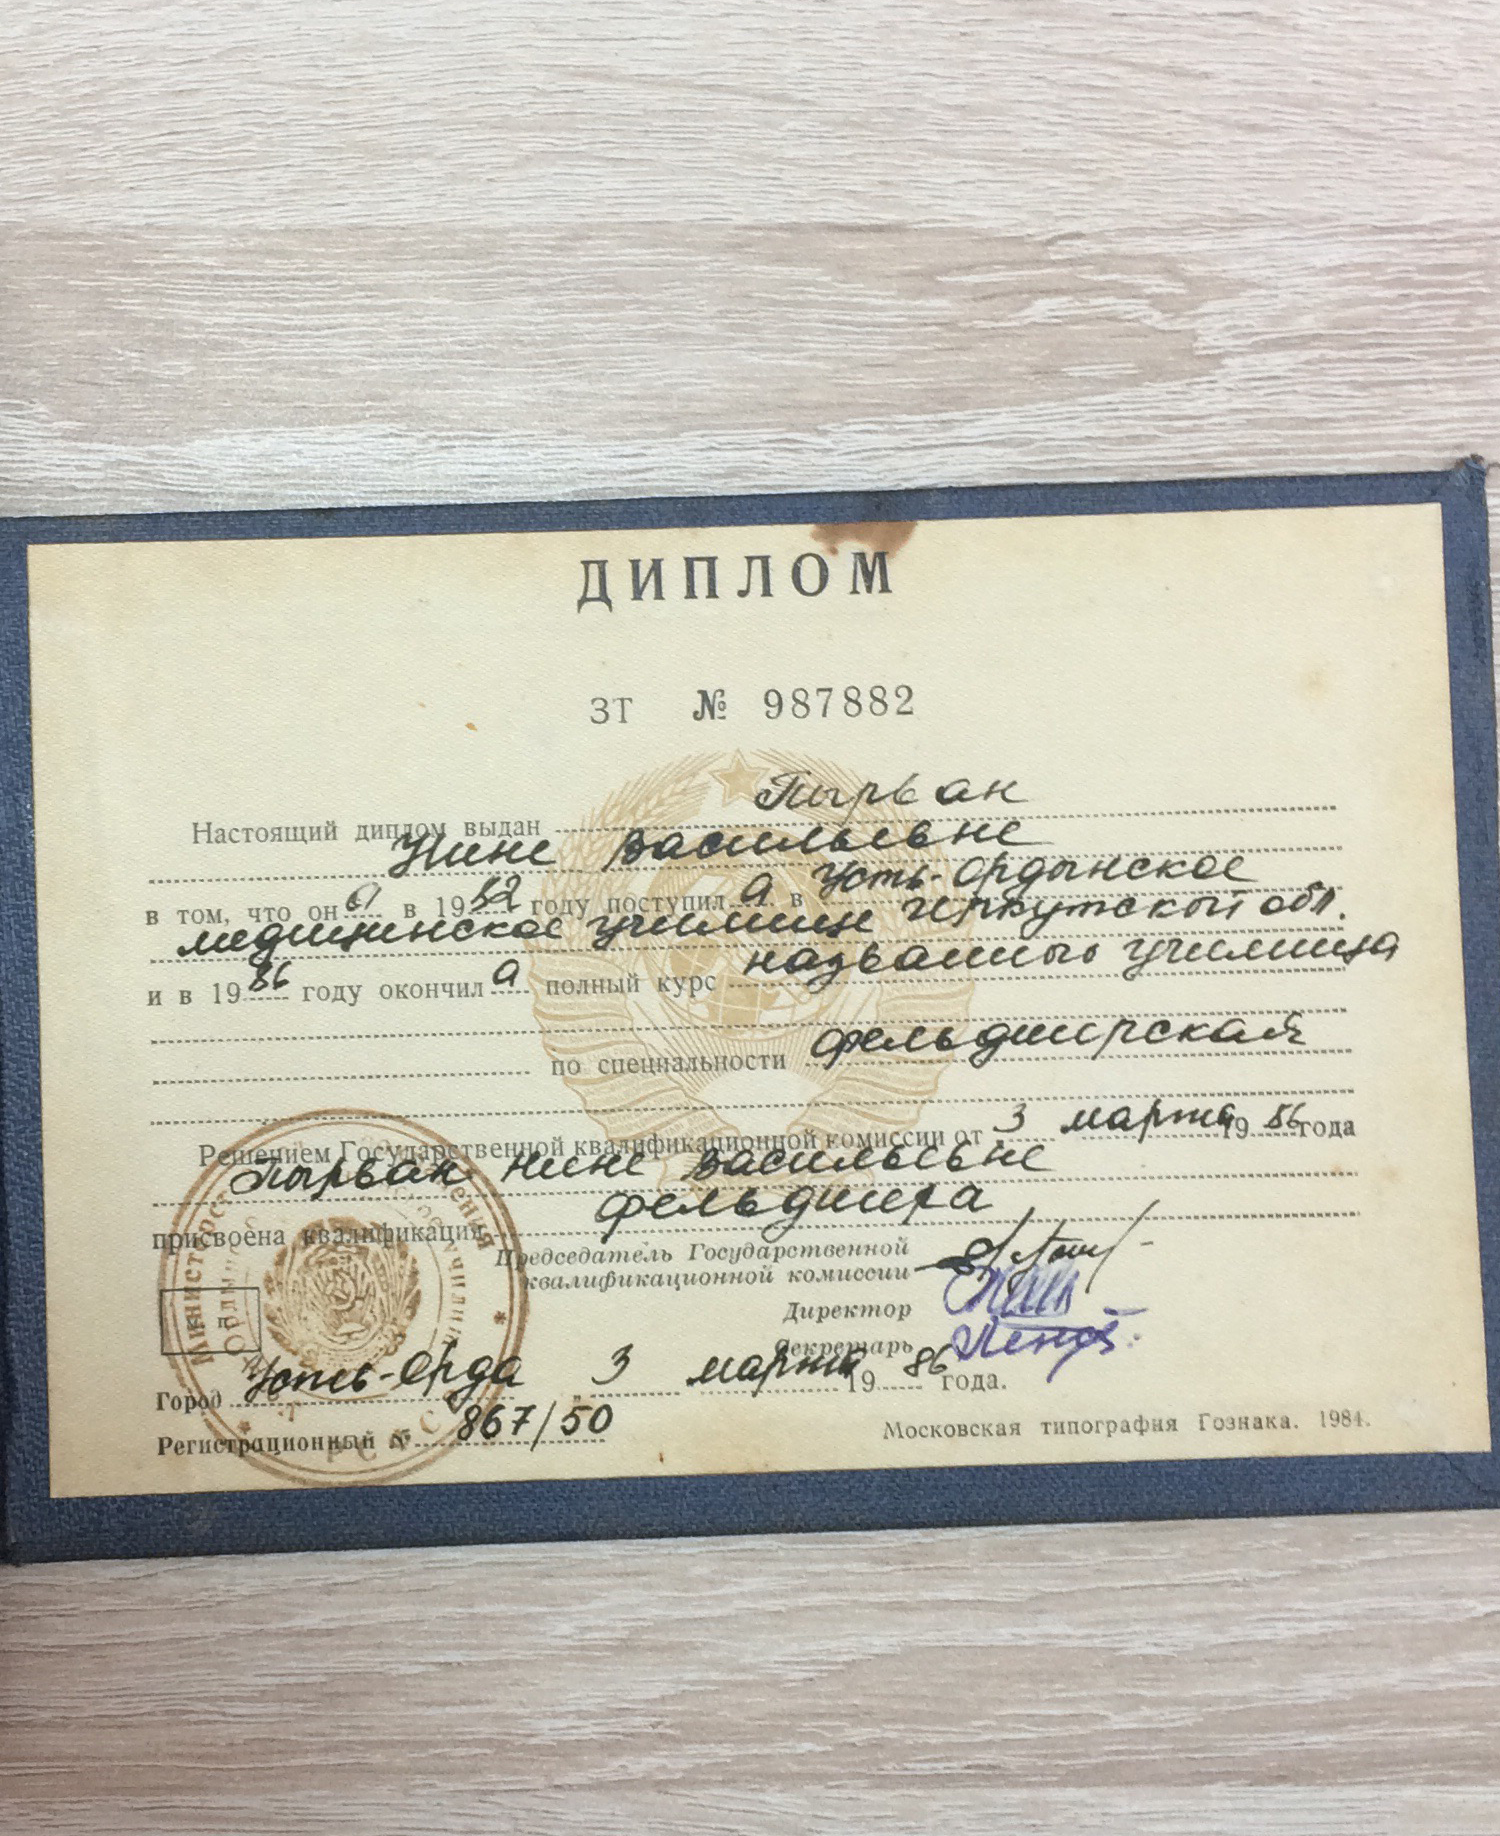 ДИПЛОМ
ЗТ № 987882
Настоящий диплом выдан Пырван
Нине Васильевне
в том, что он а в 1982 году поступил а в Усть-Ордынское
медицинское училище Иркутской обл.
и в 1986 году окончил а полный курс названного училища
по специальности фельдшерская
Решением Государственной квалификационной комиссии от 3 марта 1986 года
Пырван Нине Васильевне
присвоена квалификация фельдшера
Председатель Государственной
квалификационной комиссии
Директор
Секретарь
Город Усть-Орда 3 марта 1986 года.
Регистрационный № 867/50
Московская типография Гознака. 1984.